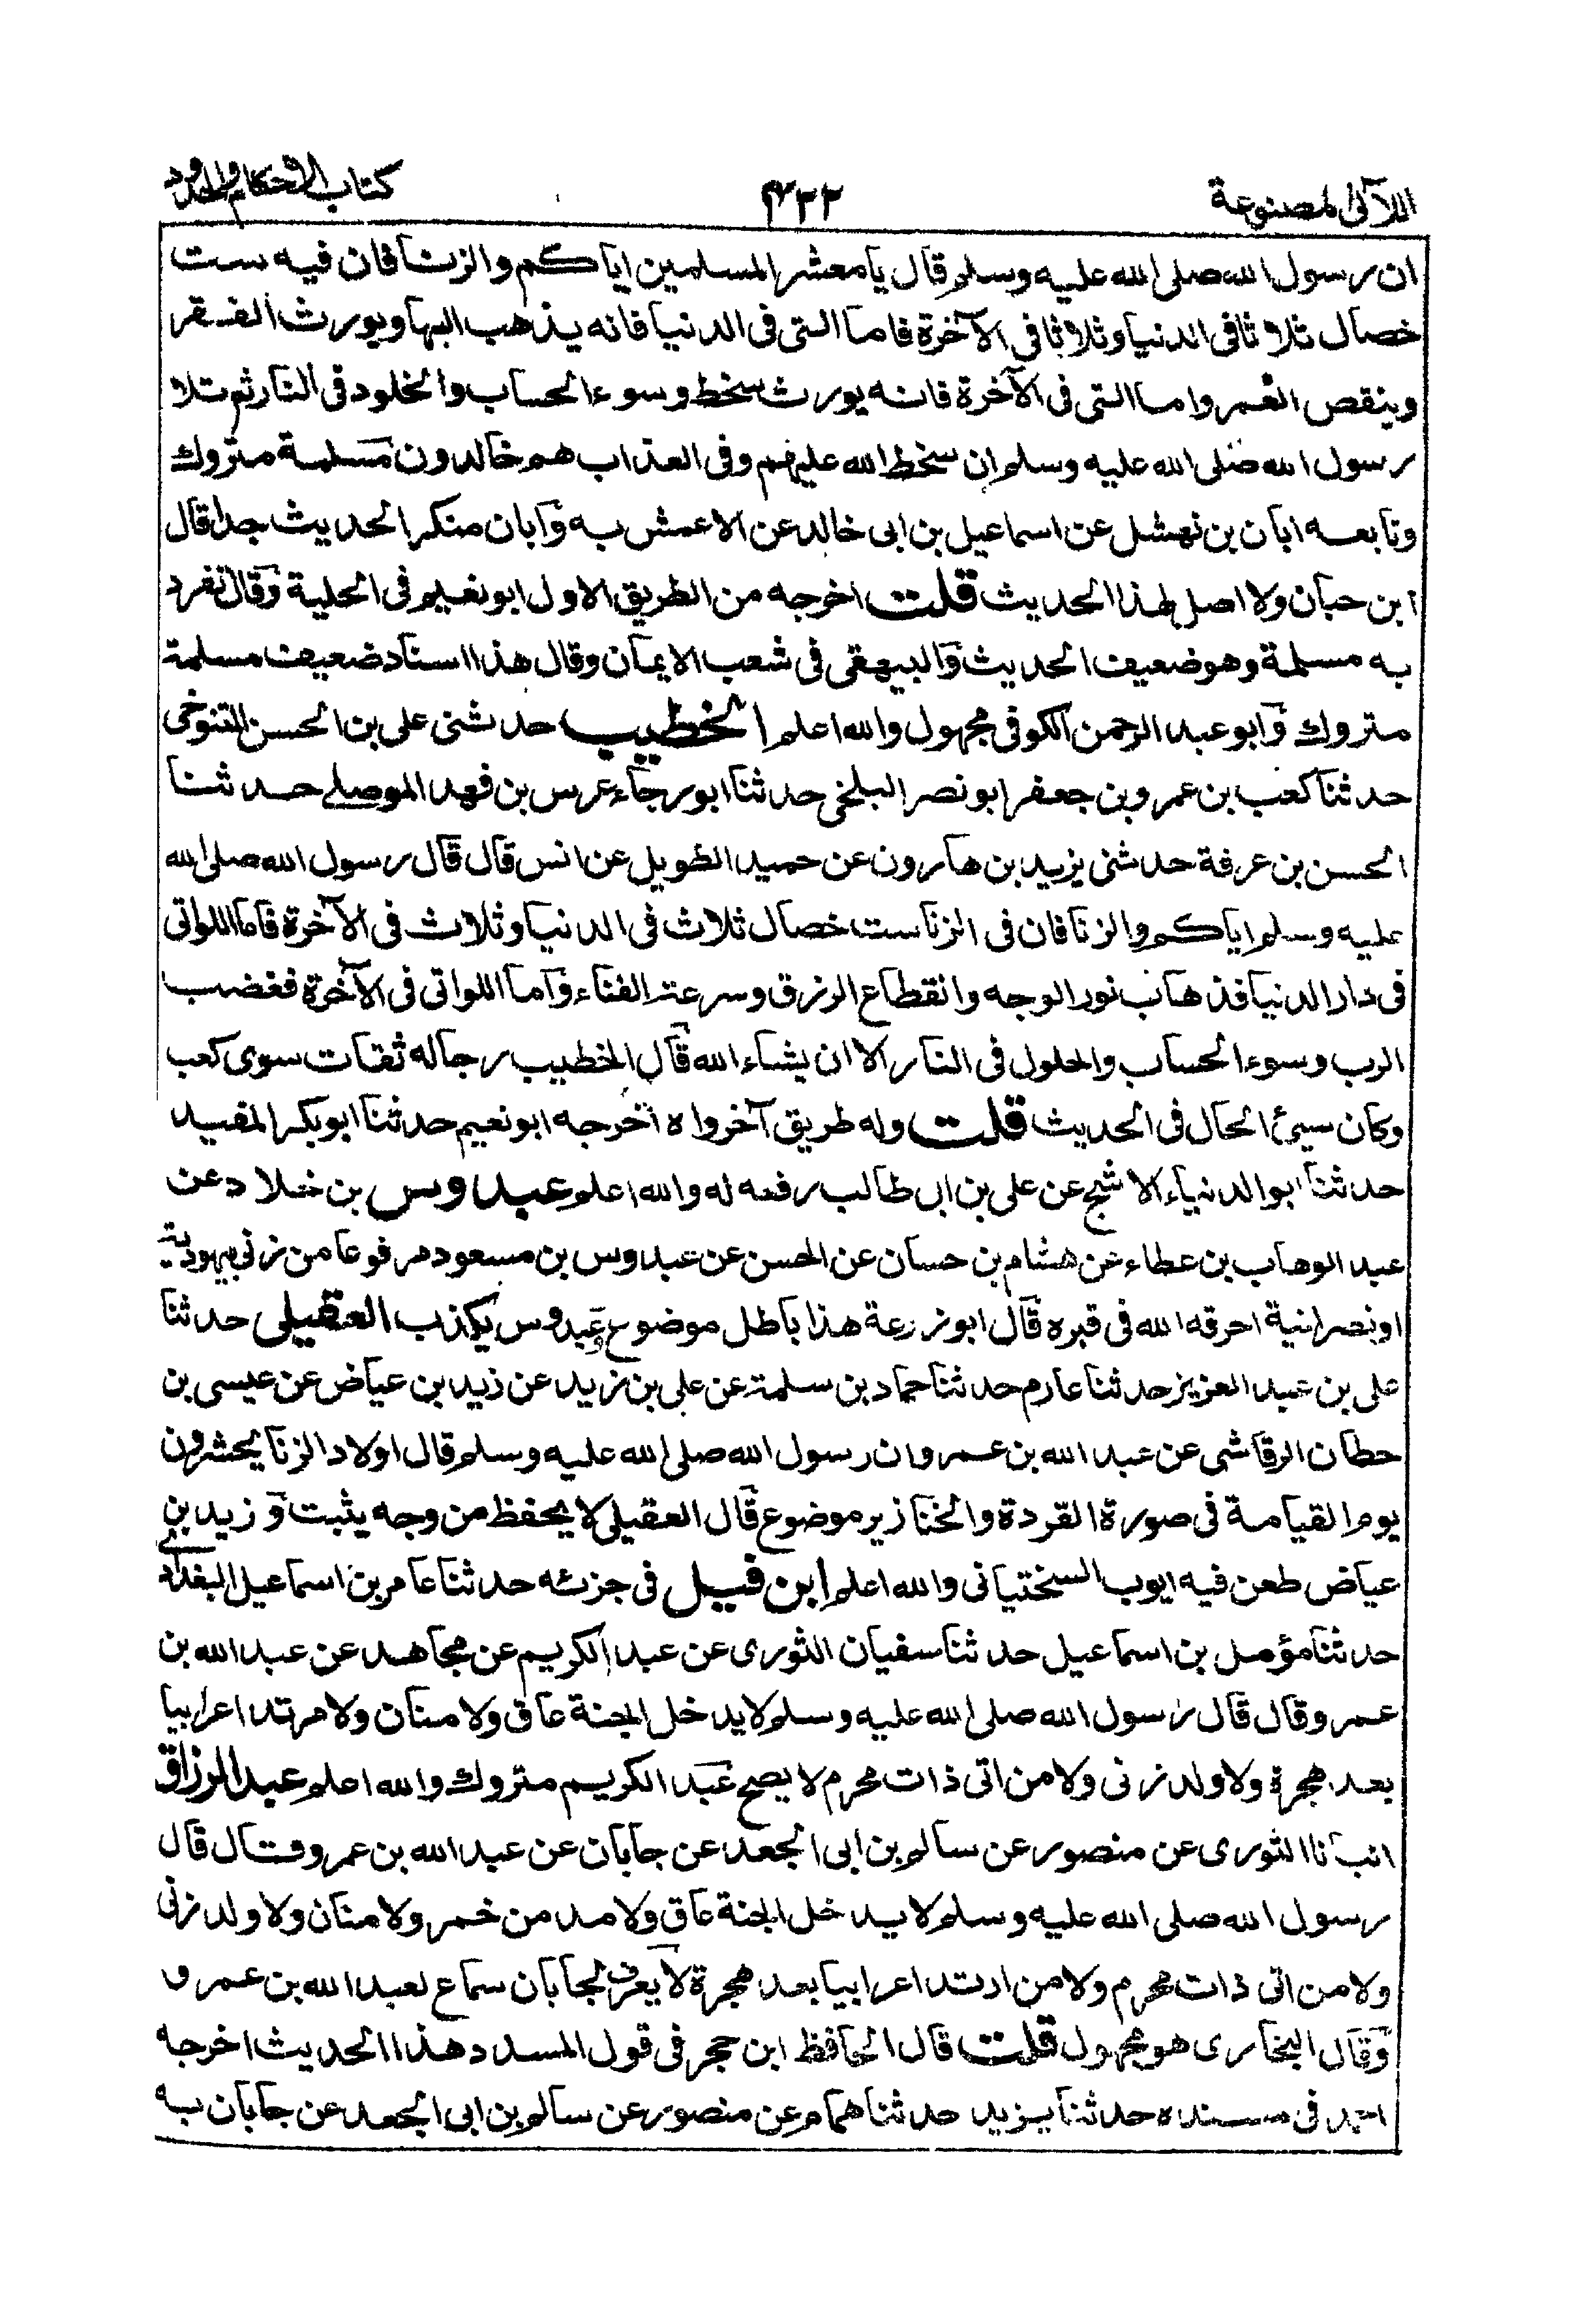 اللآلئ المصنوعة
٣٢٢م
كتاب الاحكام والحدود
ان رسول الله صلى الله عليه وسلم قال يا معشر المسلمين اياكم والزنا فان فيه ست
خصال ثلاثا فى الدنيا وثلاثا فى الآخرة فاما التى فى الدنيا فانه يذهب البها ويورث الفقر
وينقص العمر واما التى فى الآخرة فانه يورث سخط وسوء الحساب والخلود فى النار ثم تلا
رسول الله صلى الله عليه وسلم ان سخط الله عليهم وفى العذاب هم خالدون مسلمة متروك
وتابعه ابان بن نهشل عن اسماعيل بن ابى خالد عن الاعمش به وآبان منكر الحديث جدا قال
ابن حبان ولا اصل لهذا الحديث قلت اخرجه من الطريق الاول ابو نعيم فى الحلية وقال تفرد
به مسلمة وهو ضعيف الحديث والبيهقى فى شعب الايمان وقال هذا اسناد ضعيف مسلمة
متروك وابو عبد الرحمن الكوفى مجهول والله اعلم الخطيب حدثنى على بن الحسن التنوخى
حدثنا كعب بن عمرو بن جعفر ابو نصر البلخى حدثنا ابو رجاء عرس بن فهد الموصلے حدثنا
الحسن بن عرفة حدثنى يزيد بن هارون عن حميد الطويل عن انس قال قال رسول الله صلى الله
عليه وسلم اياكم والزنا فان فى الزنا ست خصال ثلاث فى الدنيا وثلاث فى الآخرة فاما اللواتى
فى دار الدنيا فذهاب نور الوجه وانقطاع الرزق وسرعة الفناء واما اللواتى فى الآخرة فغضب
الرب وسوء الحساب والحلول فى النار الا ان يشاء الله قال الخطيب رجاله ثقات سوى كعب
وكان سيئ الحال فى الحديث قلت وله طريق آخر واه اخرجه ابو نعيم حدثنا ابو بكر المفيد
حدثنا ابو الدنياء الاشج عن على بن ابى طالب رفعه له والله اعلم عبدوس بن خلاد عن
عبد الوهاب بن عطاء عن هشام بن حسان عن الحسن عن عبدوس بن مسعود مرفوعا من زنى بيهودية
او نصرانية احرقه الله فى قبره قال ابو زرعة هذا باطل موضوع عبدوس يكذب العقيلى حدثنا
على بن عبد العزيز حدثنا عارم حدثنا حماد بن سلمة عن على بن زيد عن زيد بن عياض عن عيسى بن
حطان الرقاشى عن عبد الله بن عمرو ان رسول الله صلى الله عليه وسلم قال اولاد الزنا يحشرون
يوم القيامة فى صورة القردة والخنازير موضوع قال العقيلى لا يحفظ من وجه يثبت وزيد بن
عياض طعن فيه ايوب السختيانى والله اعلم ابن فيل فى جزئه حدثنا عامر بن اسماعيل البغدادى
حدثنا مؤمل بن اسماعيل حدثنا سفيان الثورى عن عبد الكريم عن مجاهد عن عبد الله بن
عمرو قال قال رسول الله صلى الله عليه وسلم لا يدخل الجنة عاق ولا منان ولا مرتد اعرابيا
بعد هجرة ولا ولد زنى ولا من اتى ذات محرم لا يصح عبد الكريم متروك والله اعلم عبد الرزاق
انبانا الثورى عن منصور عن سالم بن ابى الجعد عن جابان عن عبد الله بن عمرو قال قال
رسول الله صلى الله عليه وسلم لا يدخل الجنة عاق ولا مدمن خمر ولا منان ولا ولد زنى
ولا من اتى ذات محرم ولا من ارتد اعرابيا بعد هجرة لا يعرف لجابان سماع لعبد الله بن عمرو
وقال البخارى هو مجهول قلت قال الحافظ ابن حجر فى قول المسدد هذا الحديث اخرجه
احمد فى مسنده حدثنا يزيد حدثنا همام عن منصور عن سالم بن ابى الجعد عن جابان به